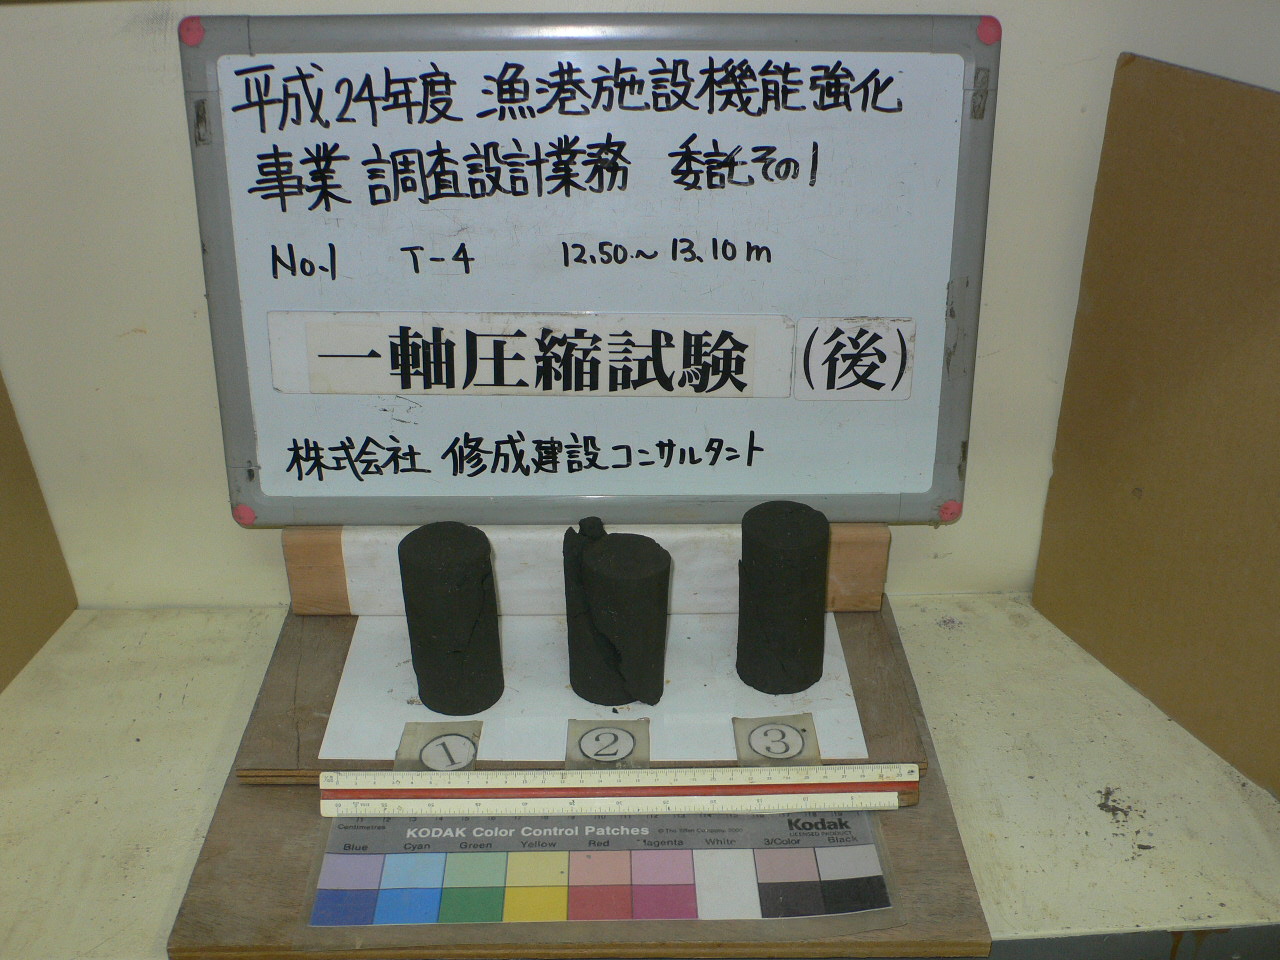 平成24年度 漁港施設機能強化
事業 調査設計業務 委託その1
No.1 T-4 12.50~13.10m
一軸圧縮試験 (後)
株式会社 修成建設コンサルタント
① ② ③
Centimetres KODAK Color Control Patches Kodak
LICENSED PRODUCT
Blue Cyan Green Yellow Red Magenta White 3/Color Black